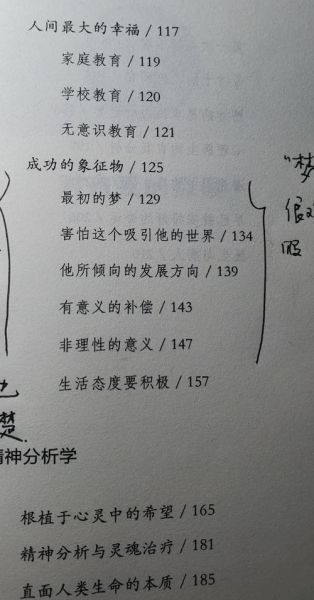 人间最大的幸福 / 117
家庭教育 / 119
学校教育 / 120
无意识教育 / 121
成功的象征物 / 125
最初的梦 / 129
"梦
害怕这个吸引他的世界 / 134
他所倾向的发展方向 / 139
有意义的补偿 / 143
非理性的意义 / 147
生活态度要积极 / 157
楚
精神分析学
根植于心灵中的希望 / 165
精神分析与灵魂治疗 / 181
直面人类生命的本质 / 185